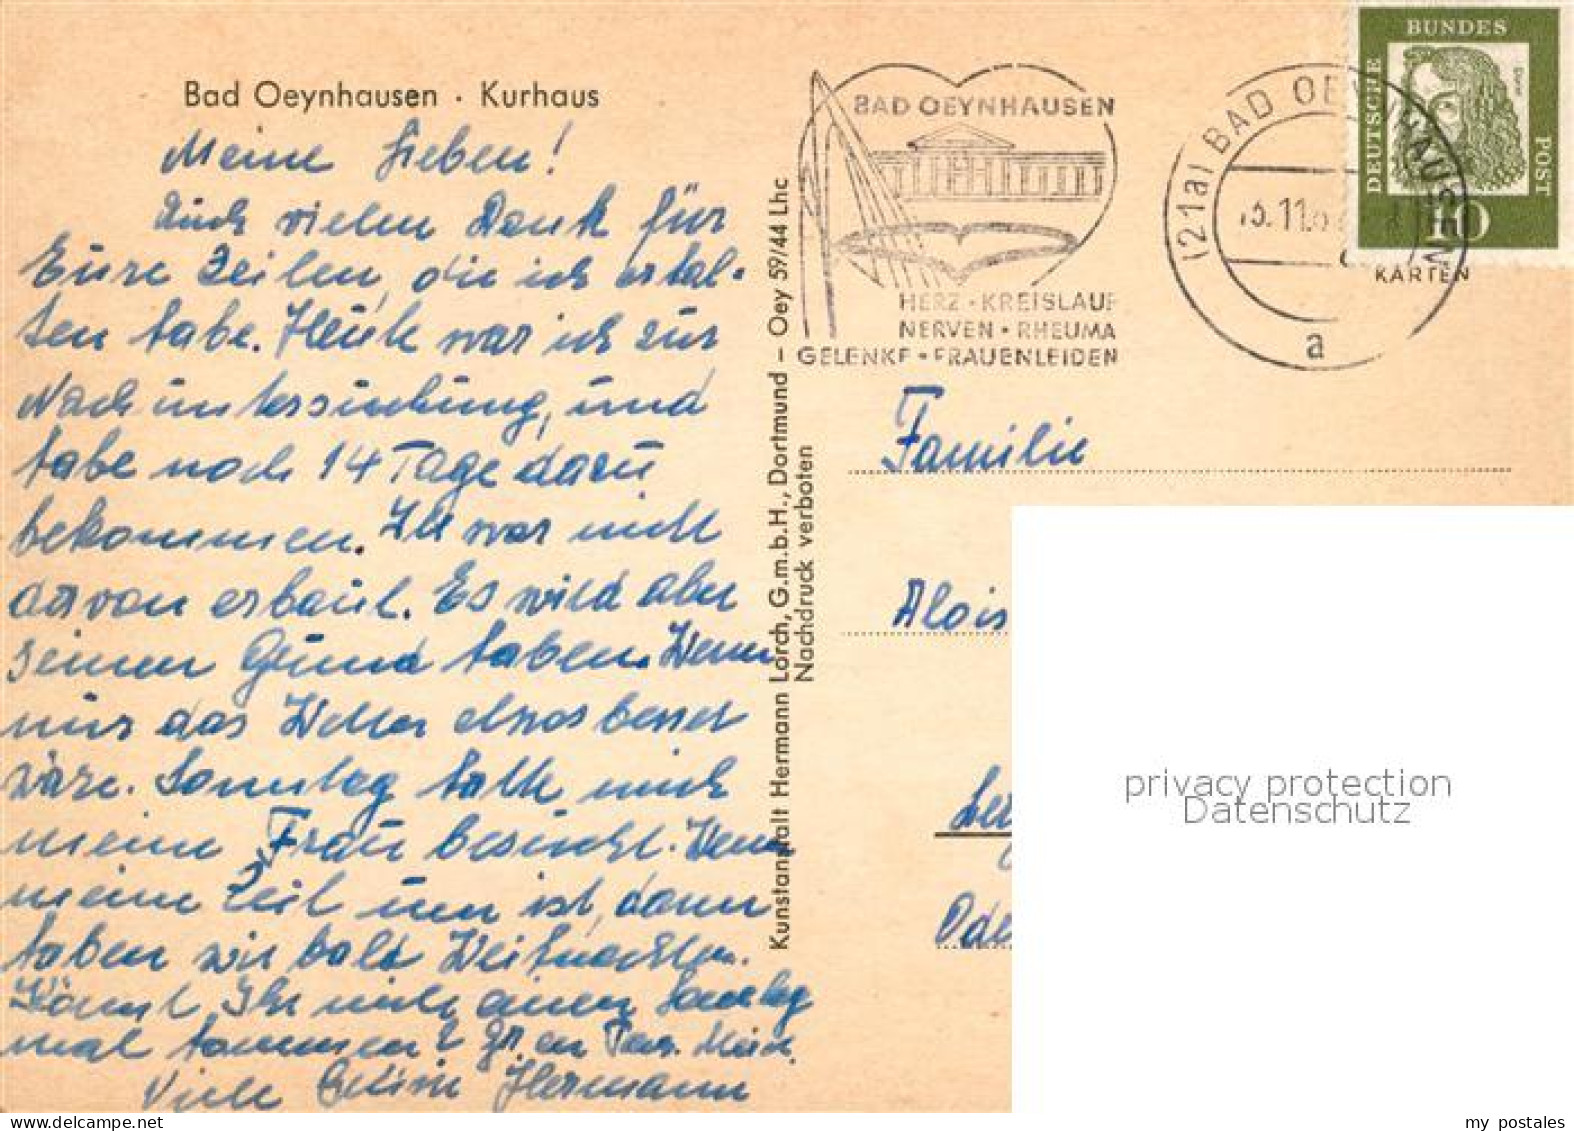 Bad Oeynhausen · Kurhaus
Meine Lieben!
Auch vielen Dank für
Eure Zeilen, die ich erhal-
ten habe. Heute war ich zur
Nachuntersuchung, und
habe noch 14 Tage dazu
bekommen. Ich war nicht
davon erbaut. Es wird aber
seinen Grund haben. Wenn
nur das Wetter etwas besser
wäre. Sonntag hatte mich
meine Frau besucht. Wenn
meine Zeit um ist, dann
haben wir bald Weihnachten.
Könnt Ihr nicht einen Sonntag
mal kommen?
Viele Grüße Hermann
Kunstanstalt Hermann Lorch, G.m.b.H., Dortmund – Oey 59/44 Lhc
Nachdruck verboten
BAD OEYNHAUSEN
HERZ · KREISLAUF
NERVEN · RHEUMA
GELENKE · FRAUENLEIDEN
(21a) BAD OEYNHAUSEN
a
DEUTSCHE
BUNDES
POST
10
KARTEN
Familie
Alois
privacy protection
Datenschutz
my postales